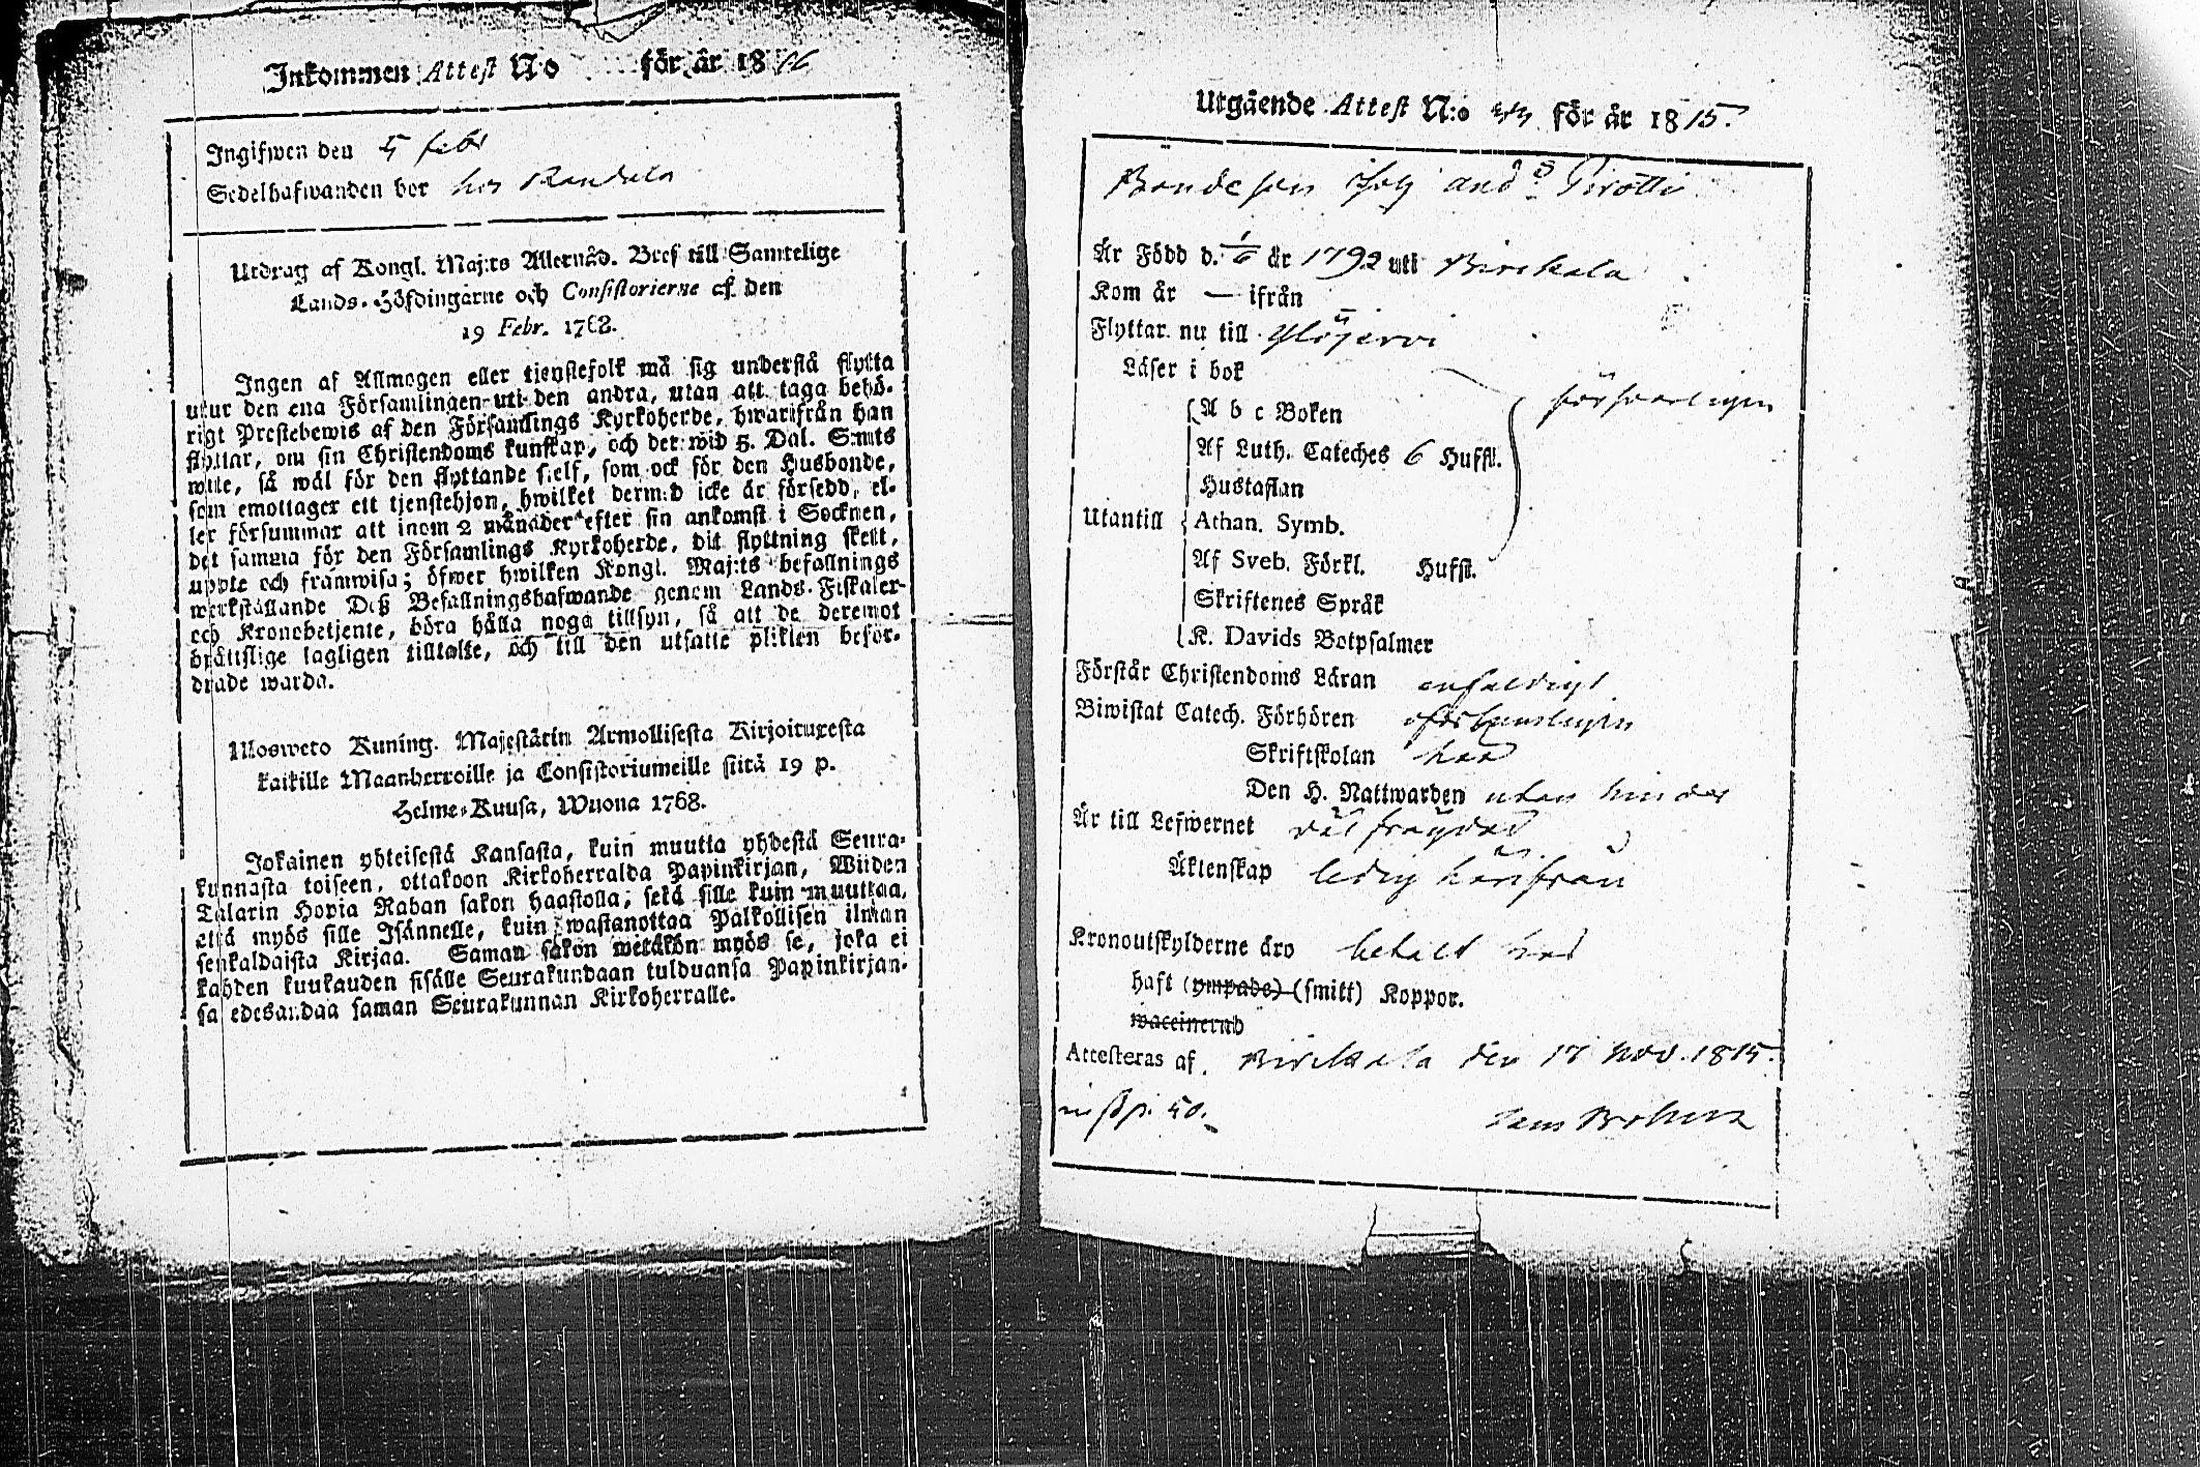 Inkommen Attest N:o för år 1816
Ingifwen den 5 febr
Sedelhafwanden bor hos Randala
Utdrag af Kongl. Maj:ts Allernåd. Bref till Samtelige
Lands-Höfdingarne och Consistorierne af den
19 Febr. 1768.
Ingen af Allmogen eller tjenstefolk må sig understå flytta
utur den ena Församlingen uti den andra, utan att taga behö-
rigt Prestebewis af den Församlings Kyrkoherde, hwarifrån han
flyttar, om sin Christendoms kunskap, och det wid 5. Dal. S:mts
wite, så wäl för den flyttande sielf, som ock för den Husbonde,
som emottager ett tjenstehjon, hwilket dermed icke är försedd, el-
ler försummar att inom 2 månader efter sin ankomst i Socknen,
det samma för den Församlings Kyrkoherde, dit flyttning skett,
uppte och framwisa; öfwer hwilken Kongl. Maj:ts befallnings
werkställande Deß Befallningshafwande genom Lands-Fiskaler
och Kronobetjente, böra hålla noga tillsyn, så att de deremot
brättslige lagligen tilltalte, och till den utsatte plikten beför-
drade warda.
Ulosweto Kuning. Majestätin Armollisesta Kirjoituxesta
kaikille Maanherroille ja Consistoriumeille siitä 19 p.
Helme-Kuusa, Wuona 1768.
Jokainen yhteisestä Kansasta, kuin muutta yhdestä Seura-
kunnasta toiseen, ottakoon Kirkoherralda Papinkirjan, Wiiden
Talarin Hopia Rahan sakon haastolla, sekä sille kuin muuttaa,
että myös sille Isännelle, kuin wastanottaa Palkollisen ilman
senkaldaista Kirjaa. Saman sakon wetäkön myös se, joka ei
kahden kuukauden sisälle Seurakundaan tulduansa Papinkirjan-
sa edesandaa saman Seurakunnan Kirkoherralle.
Utgående Attest N:o för år 1815.
Bondeson Joh And:s Pirotti
Är Född d. 1/6 år 1792 uti Birckala
Kom år — ifrån
Flyttar nu till Ylöjervi
Läser i bok försvarligen
A b c Boken
Af Luth. Cateches 6 Hufst.
Hustaflan
Utantill Athan. Symb.
Af Sveb. Förkl. Hufst.
Skriftenes Språk
K. Davids Botpsalmer
Förstår Christendoms Läran enfaldigt
Biwistat Catech. Förhören oförsumligen
Skriftskolan har
Den H. Nattwarden utan hinder
Är till Lefwernet väl frägdad
Äktenskap ledig härifrån
Kronoutskylderne äro betalt har
haft (ympade) (smitt) Koppor.
waccinerad
Attesteras af. Birckala den 17 Nov. 1815.